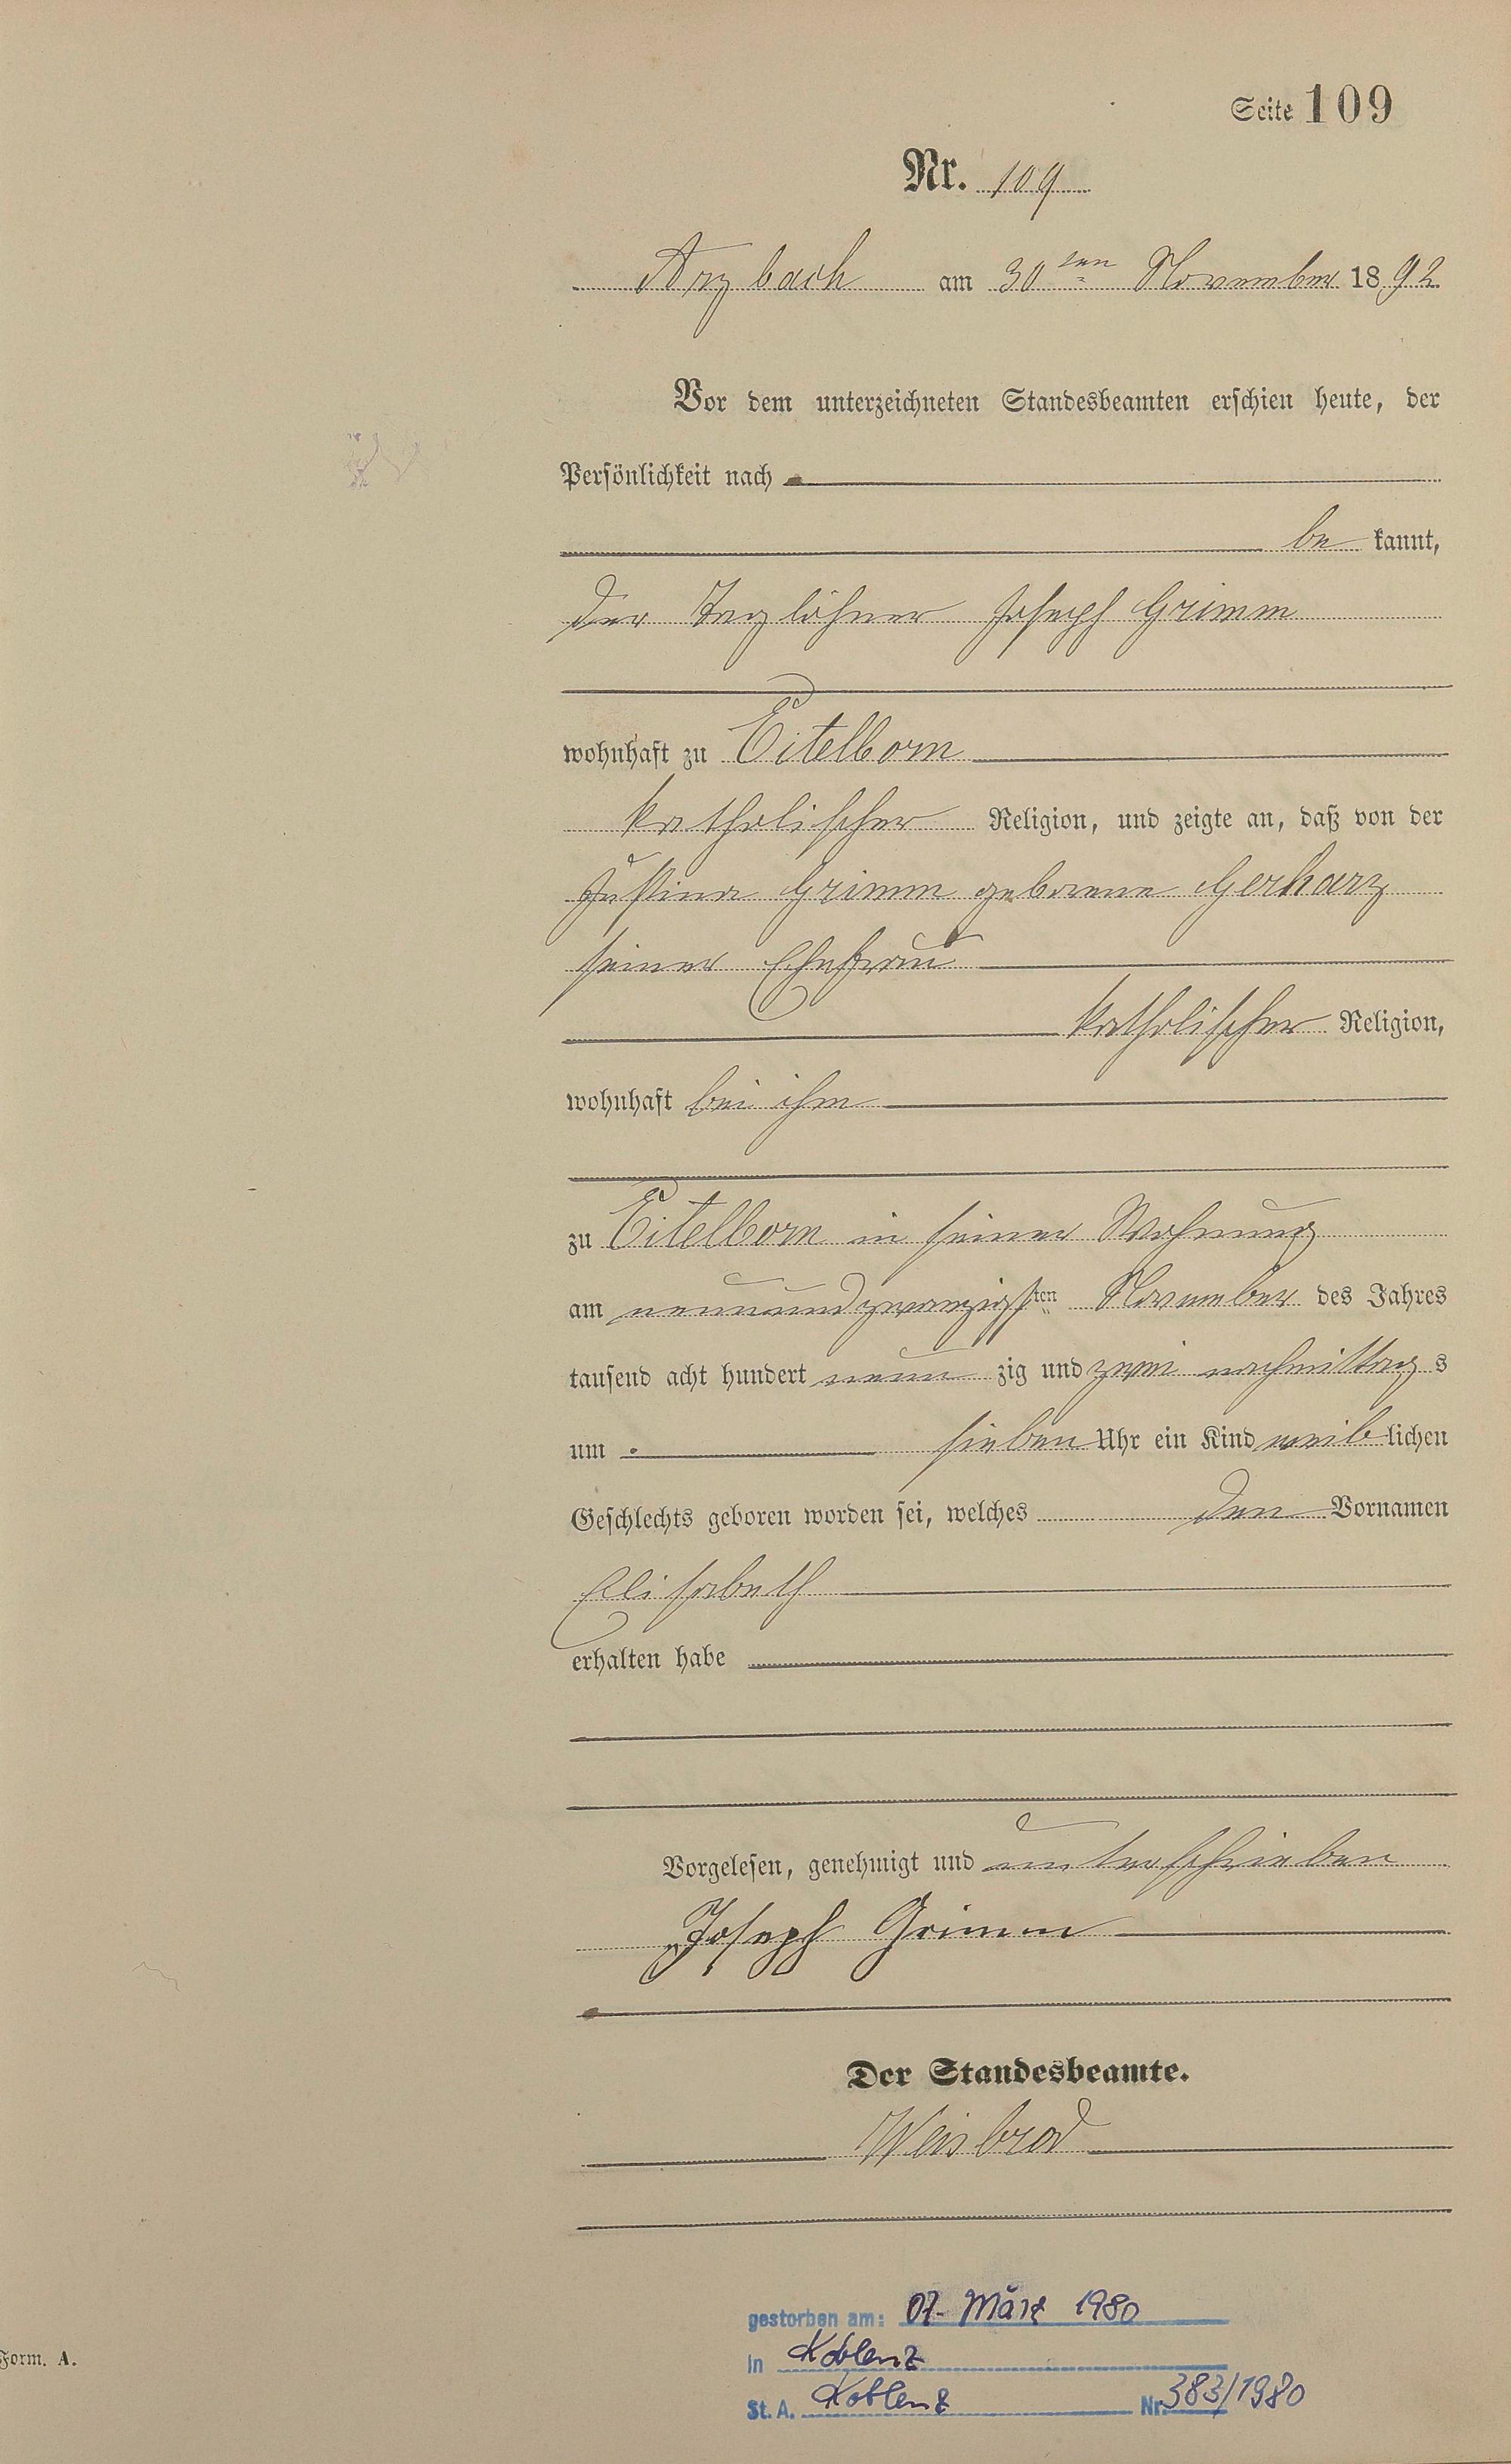 Seite 109
Nr. 109
Arzbach am 30ten November 1892
Vor dem unterzeichneten Standesbeamten erschien heute, der
Persönlichkeit nach
be kannt,
der Taglöhner Joseph Grimm
wohnhaft zu Eitelborn
katholischer Religion, und zeigte an, daß von der
Justina Grimm geborene Gerharz
seiner Ehefrau
katholischer Religion,
wohnhaft bei ihm
zu Eitelborn in seiner Wohnung
am neunundzwanzigsten November des Jahres
tausend acht hundert neun zig und zwei nachmittag s
um sieben Uhr ein Kind weib lichen
Geschlechts geboren worden sei, welches den Vornamen
Elisabeth
erhalten habe
Vorgelesen, genehmigt und unterschrieben
Joseph Grimm
Der Standesbeamte.
Weisbrod
gestorben am: 07. März 1980
in Koblenz
St. A. Koblenz Nr. 383/1980
Form. A.